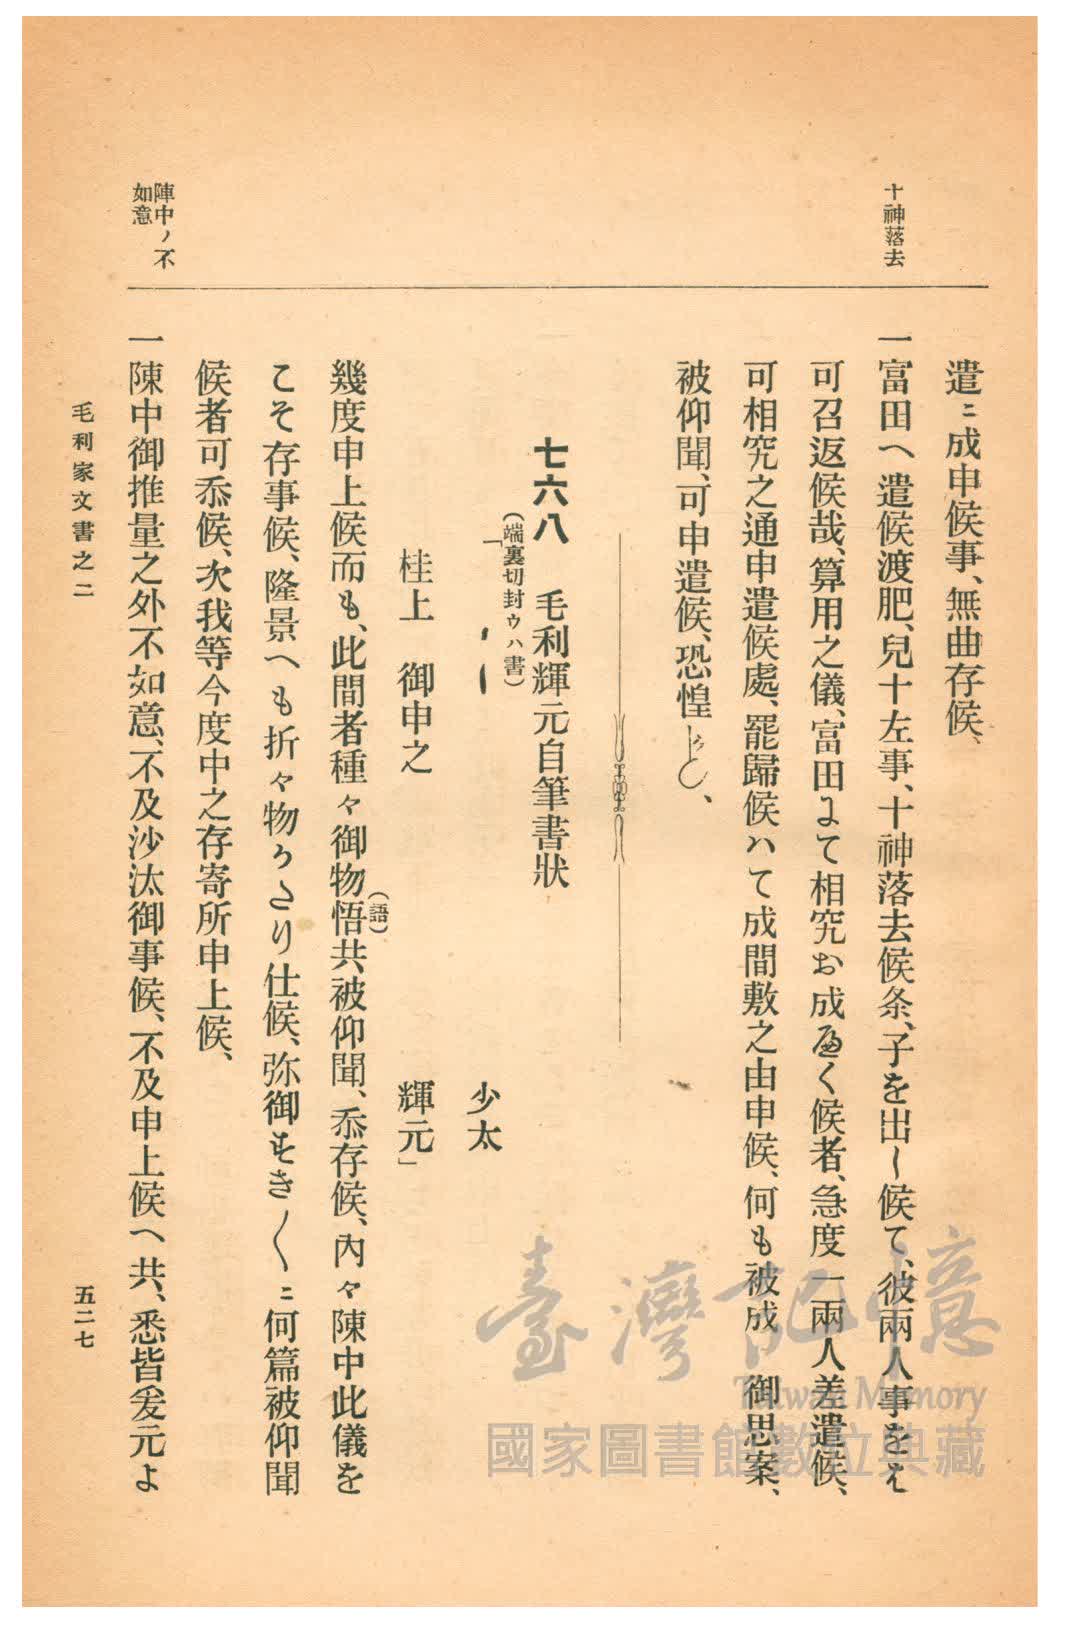 十神落去
遣ニ成申候事、無曲存候、
一富田へ遣候渡肥、兒十左事、十神落去候条、子を出し候て、彼兩人事をえ
可召返候哉、算用之儀、富田よて相究お成へく候者、急度一兩人差遣候、
可相究之通申遣候處、罷歸候ハて成間敷之由申候、何も被成 御思案、
被仰聞、可申遣候、恐惶
七六八 毛利輝元自筆書狀
（端裏切封ウハ書）
「
少太
桂上 御申之 輝元」
幾度申上候而も、此間者種々御物悟（語）共被仰聞、忝存候、內々陳中此儀を
こそ存事候、隆景へも折々物りさり仕候、弥御せき〱ニ何篇被仰聞
候者可忝候、次我等今度中之存寄所申上候、
陣中ノ不
如意
一陳中御推量之外不如意、不及沙汰御事候、不及申上候へ共、悉皆爰元よ
毛利家文書之二 五二七
臺灣記憶
Taiwan Memory
國家圖書館數位典藏